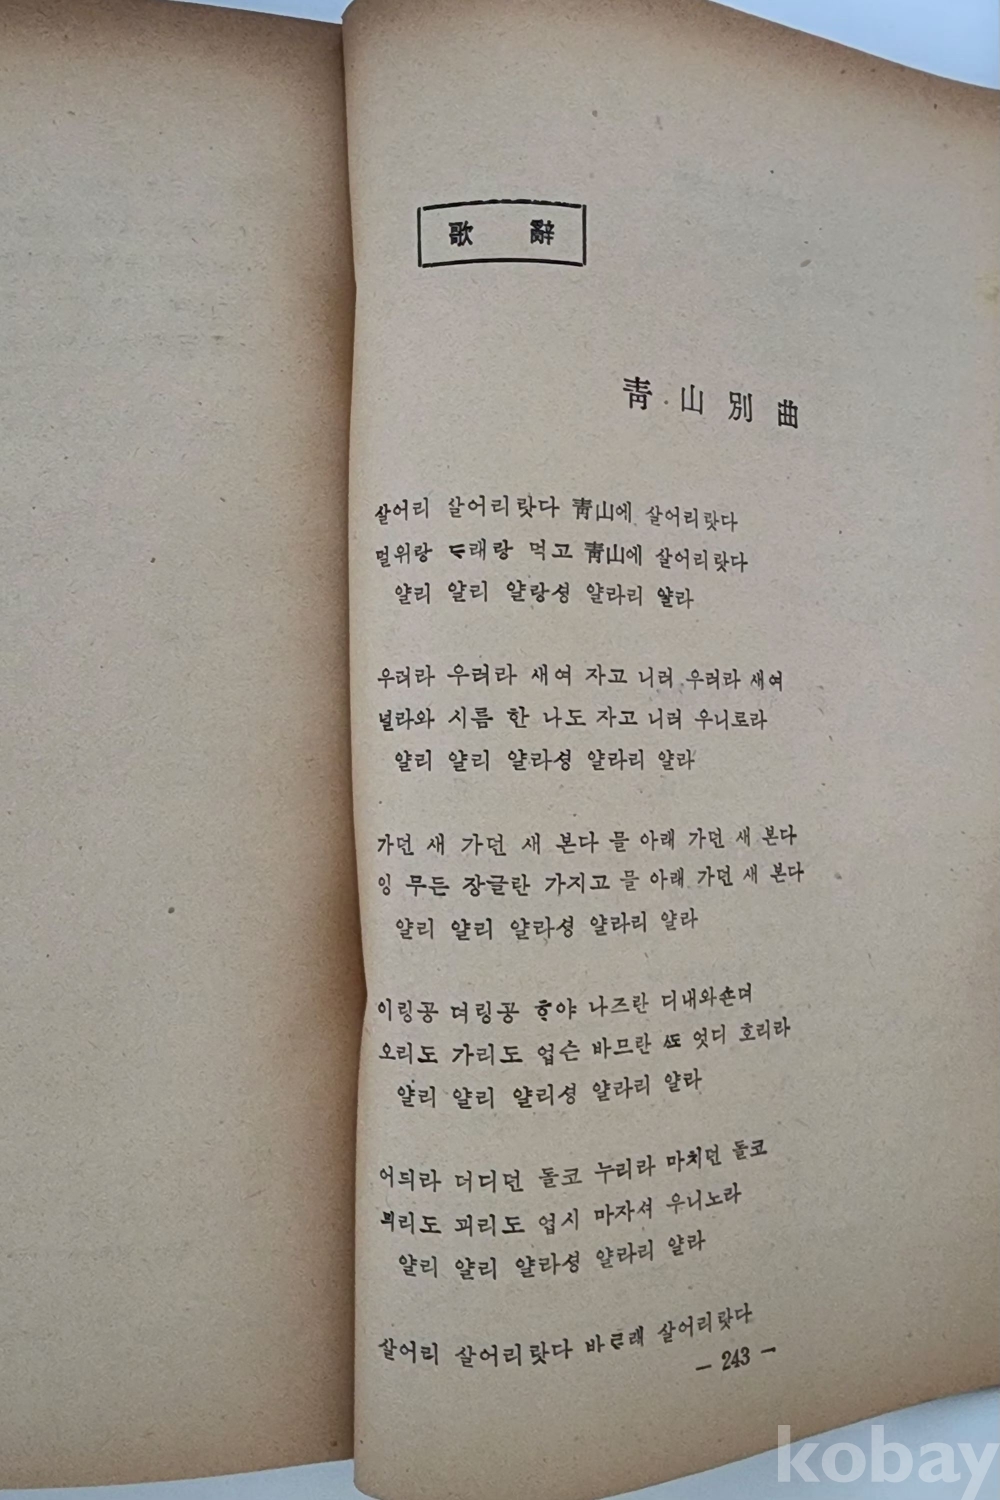 歌 辭
青山別曲
살어리 살어리랏다 青山에 살어리랏다
멀위랑 ᄃᆞ래랑 먹고 青山에 살어리랏다
얄리 얄리 얄랑셩 얄라리 얄라
우러라 우러라 새여 자고 니러 우러라 새여
널라와 시름 한 나도 자고 니러 우니로라
얄리 얄리 얄라셩 얄라리 얄라
가던 새 가던 새 본다 믈 아래 가던 새 본다
잉 무든 장글란 가지고 믈 아래 가던 새 본다
얄리 얄리 얄라셩 얄라리 얄라
이링공 뎌링공 ᄒᆞ야 나즈란 디내와손뎌
오리도 가리도 업슨 바므란 ᄯᅩ 엇디 호리라
얄리 얄리 얄리셩 얄라리 얄라
어듸라 더디던 돌코 누리라 마치던 돌코
믜리도 괴리도 업시 마자셔 우니노라
얄리 얄리 얄라셩 얄라리 얄라
살어리 살어리랏다 바ᄅᆞ래 살어리랏다
— 243 —
kobay